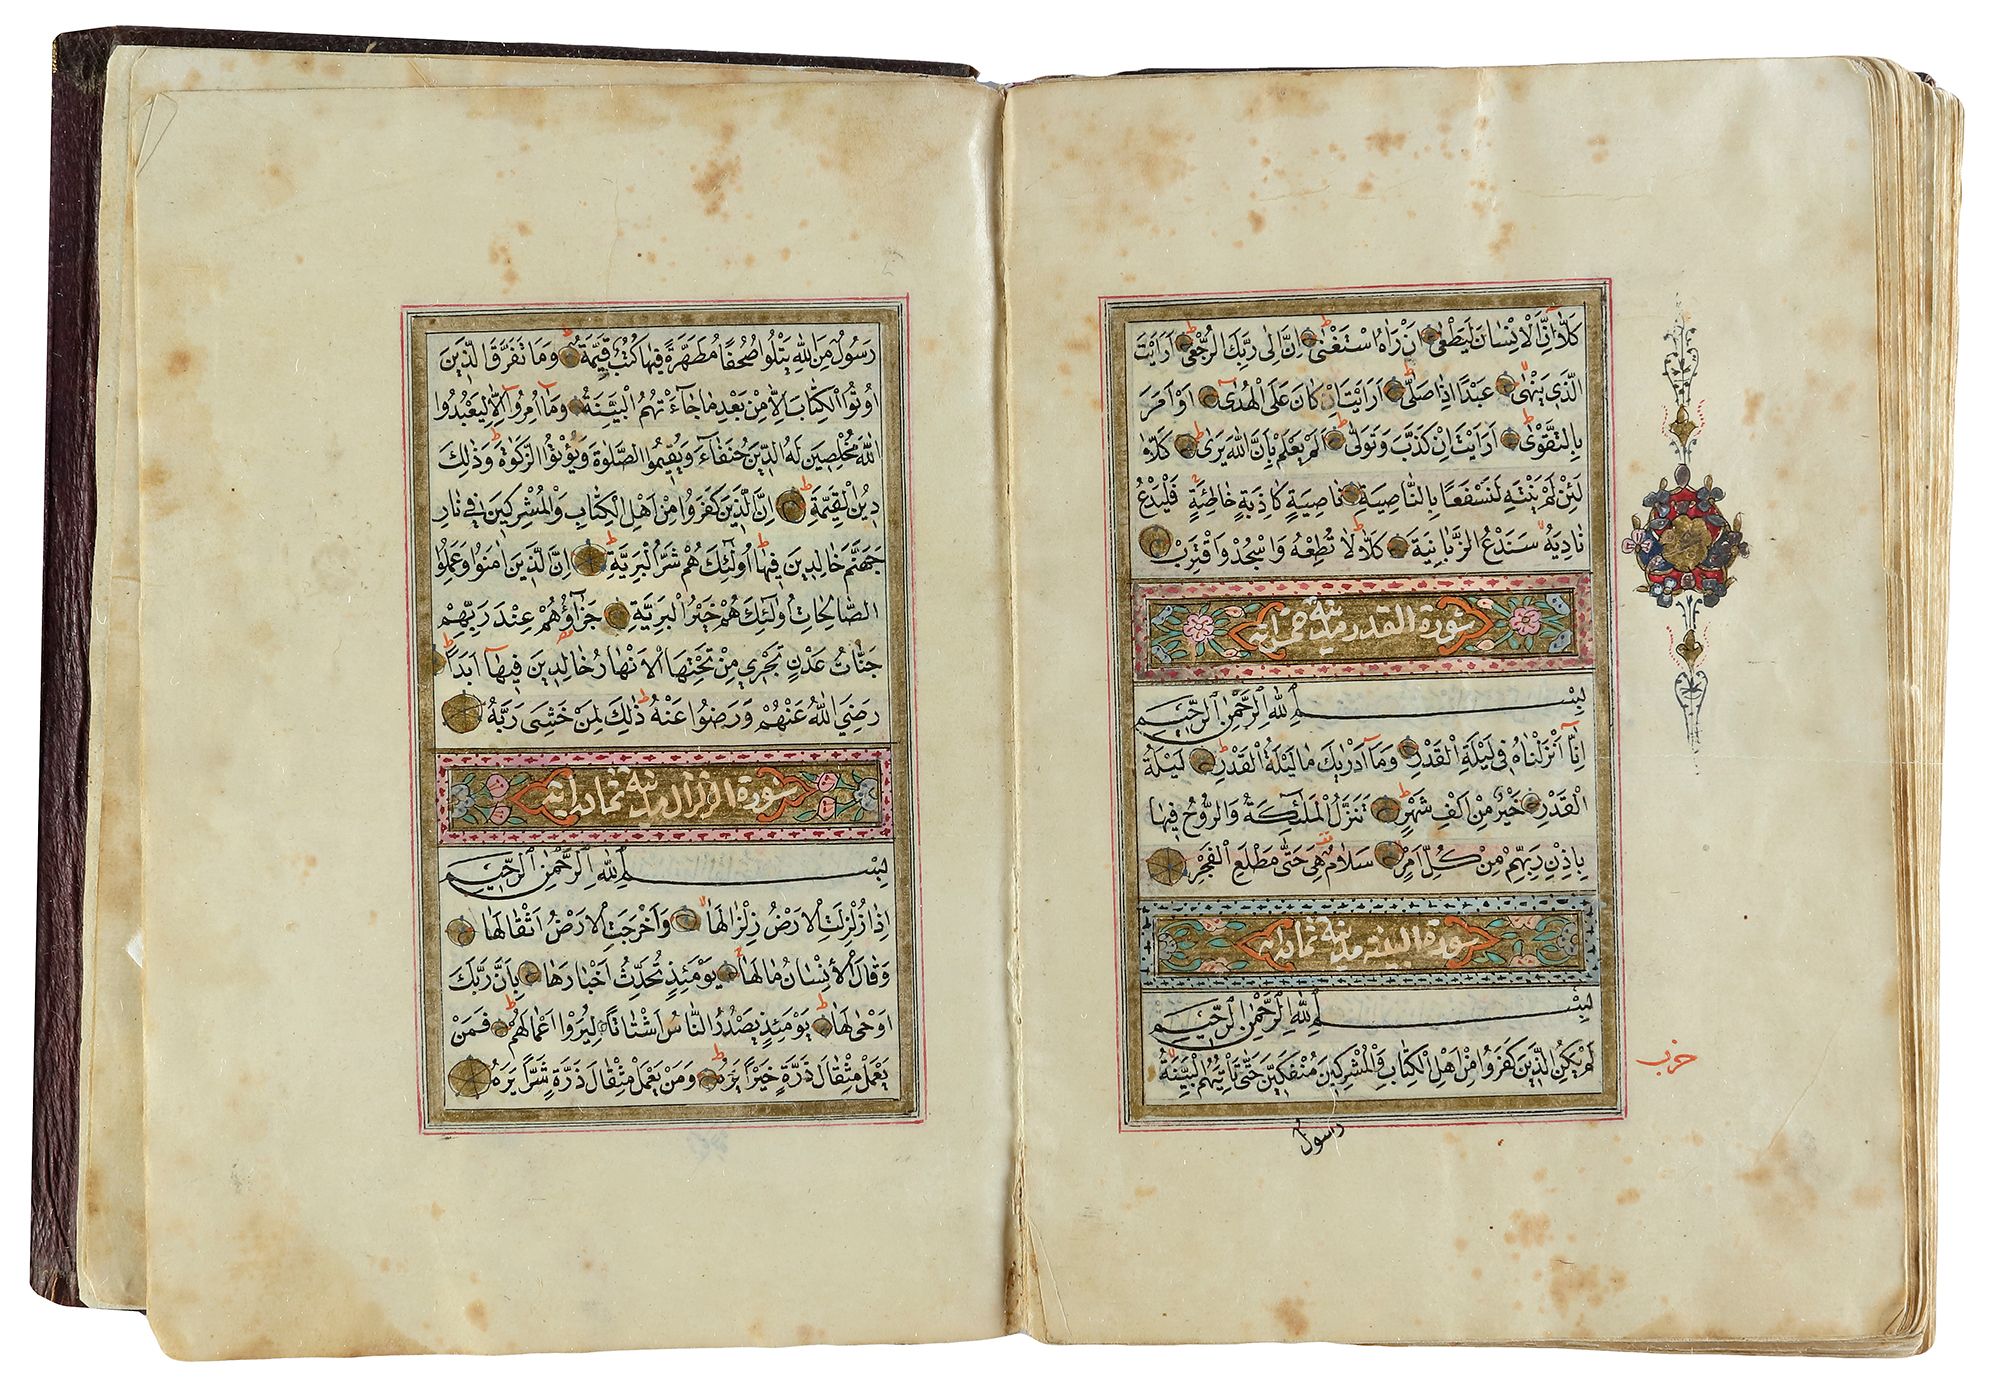 كَلَّا اِنَّ الْاِنْسَانَ لَيَطْغٰى اَنْ رَاٰهُ اسْتَغْنٰى اِنَّ اِلٰى رَبِّكَ الرُّجْعٰى اَرَاَيْتَ
الَّذِي يَنْهٰى عَبْدًا اِذَا صَلّٰى اَرَاَيْتَ اِنْ كَانَ عَلَى الْهُدٰى اَوْ اَمَرَ
بِالتَّقْوٰى اَرَاَيْتَ اِنْ كَذَّبَ وَتَوَلّٰى اَلَمْ يَعْلَمْ بِاَنَّ اللّٰهَ يَرٰى كَلَّا
لَئِنْ لَمْ يَنْتَهِ لَنَسْفَعًا بِالنَّاصِيَةِ نَاصِيَةٍ كَاذِبَةٍ خَاطِئَةٍ فَلْيَدْعُ
نَادِيَهُ سَنَدْعُ الزَّبَانِيَةَ كَلَّا لَا تُطِعْهُ وَاسْجُدْ وَاقْتَرِبْ
سورة القدر مكية خمس اية
بِسْمِ اللّٰهِ الرَّحْمٰنِ الرَّحِيمِ
اِنَّا اَنْزَلْنَاهُ فِي لَيْلَةِ الْقَدْرِ وَمَا اَدْرٰيكَ مَا لَيْلَةُ الْقَدْرِ لَيْلَةُ
الْقَدْرِ خَيْرٌ مِنْ اَلْفِ شَهْرٍ تَنَزَّلُ الْمَلٰئِكَةُ وَالرُّوحُ فِيهَا
بِاِذْنِ رَبِّهِمْ مِنْ كُلِّ اَمْرٍ سَلَامٌ هِيَ حَتّٰى مَطْلَعِ الْفَجْرِ
سورة البينة مدنية ثمان اية
بِسْمِ اللّٰهِ الرَّحْمٰنِ الرَّحِيمِ
لَمْ يَكُنِ الَّذِينَ كَفَرُوا مِنْ اَهْلِ الْكِتَابِ وَالْمُشْرِكِينَ مُنْفَكِّينَ حَتّٰى تَاْتِيَهُمُ الْبَيِّنَةُ
حزب
رسول
رَسُولٌ مِنَ اللّٰهِ يَتْلُوا صُحُفًا مُطَهَّرَةً فِيهَا كُتُبٌ قَيِّمَةٌ وَمَا تَفَرَّقَ الَّذِينَ
اُوتُوا الْكِتَابَ اِلَّا مِنْ بَعْدِ مَا جَاءَتْهُمُ الْبَيِّنَةُ وَمَا اُمِرُوا اِلَّا لِيَعْبُدُوا
اللّٰهَ مُخْلِصِينَ لَهُ الدِّينَ حُنَفَاءَ وَيُقِيمُوا الصَّلٰوةَ وَيُؤْتُوا الزَّكٰوةَ وَذٰلِكَ
دِينُ الْقَيِّمَةِ اِنَّ الَّذِينَ كَفَرُوا مِنْ اَهْلِ الْكِتَابِ وَالْمُشْرِكِينَ فِي نَارِ
جَهَنَّمَ خَالِدِينَ فِيهَا اُولٰئِكَ هُمْ شَرُّ الْبَرِيَّةِ اِنَّ الَّذِينَ اٰمَنُوا وَعَمِلُوا
الصَّالِحَاتِ اُولٰئِكَ هُمْ خَيْرُ الْبَرِيَّةِ جَزَاؤُهُمْ عِنْدَ رَبِّهِمْ
جَنَّاتُ عَدْنٍ تَجْرِي مِنْ تَحْتِهَا الْاَنْهَارُ خَالِدِينَ فِيهَا اَبَدًا
رَضِيَ اللّٰهُ عَنْهُمْ وَرَضُوا عَنْهُ ذٰلِكَ لِمَنْ خَشِيَ رَبَّهُ
سورة الزلزال مدنية ثمان اية
بِسْمِ اللّٰهِ الرَّحْمٰنِ الرَّحِيمِ
اِذَا زُلْزِلَتِ الْاَرْضُ زِلْزَالَهَا وَاَخْرَجَتِ الْاَرْضُ اَثْقَالَهَا
وَقَالَ الْاِنْسَانُ مَا لَهَا يَوْمَئِذٍ تُحَدِّثُ اَخْبَارَهَا بِاَنَّ رَبَّكَ
اَوْحٰى لَهَا يَوْمَئِذٍ يَصْدُرُ النَّاسُ اَشْتَاتًا لِيُرَوْا اَعْمَالَهُمْ فَمَنْ
يَعْمَلْ مِثْقَالَ ذَرَّةٍ خَيْرًا يَرَهُ وَمَنْ يَعْمَلْ مِثْقَالَ ذَرَّةٍ شَرًّا يَرَهُ